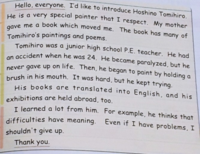 Hello, everyone. I'd like to introduce Hoshino Tomihiro.
He is a very special pointer that I respect. My mother
gave me a book which moved me. The book has many of
Tomihiro's paintings and poems.
Tomihiro was a junior high school P.E. teacher. He had
an accident when he was 24. He became paralyzed, but he
never gave up on life. Then, he began to paint by holding a
brush in his mouth. It was hard, but he kept trying.
His books are translated into English, and his
exhibitions are held abroad, too.
I learned a lot from him. For example, he thinks that
difficulties have meaning. Even if I have problems, I
shouldn't give up.
Thank you.